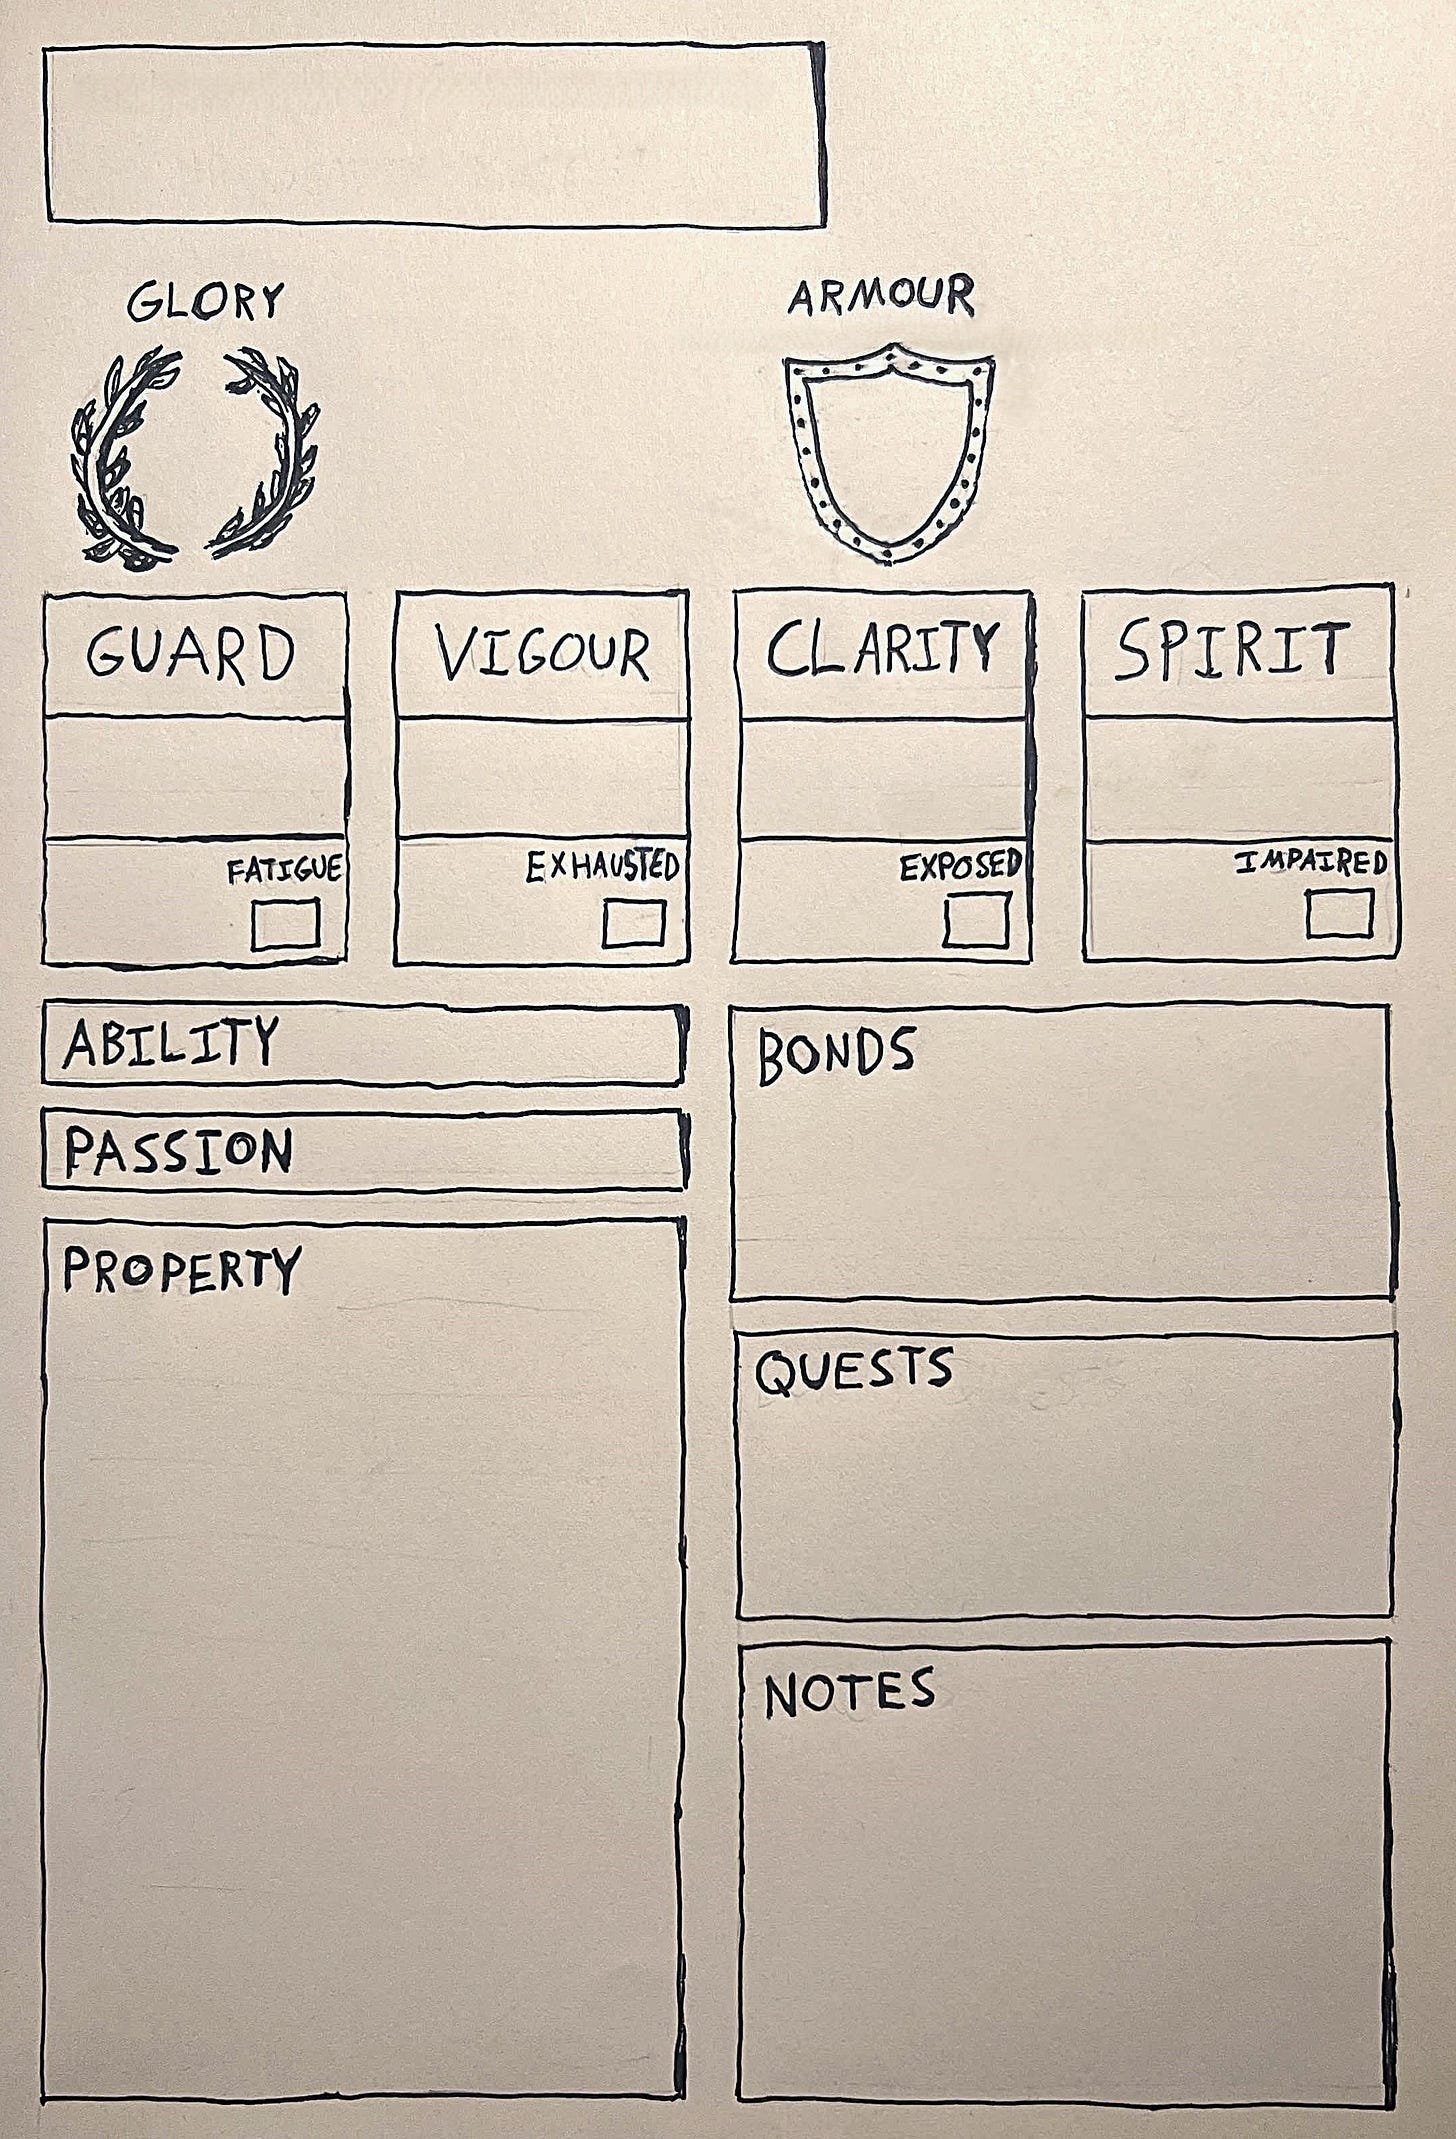 GLORY
ARMOUR
GUARD
VIGOUR
CLARITY
SPIRIT
FATIGUE
EXHAUSTED
EXPOSED
IMPAIRED
ABILITY
PASSION
PROPERTY
BONDS
QUESTS
NOTES